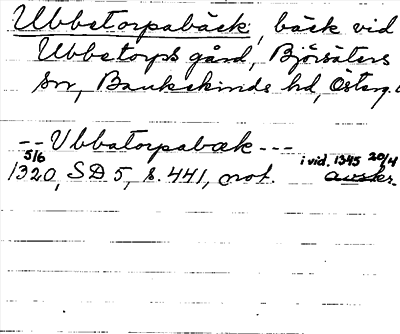 Ubbetorpabäck, bäck vid
Ubbetorps gård, Björsäters
sn, Bankekinds hd, Österg.
-- Ubbatorpabæk ---
1320 5/6, SD 5, s. 441, not. i vid. 1345 20/4 avskr.